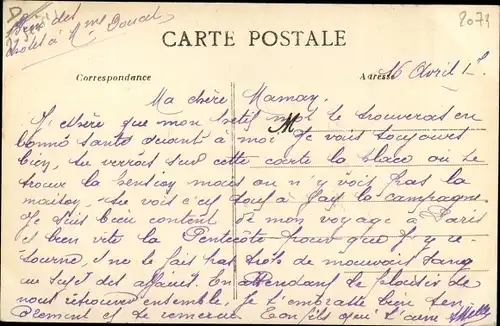 CARTE POSTALE
2073
Correspondance
Adresse
16 Avril 1
Ma chère Maman.
J'espère que mon petit mot te trouveras en
bonne santé quant à moi je vais toujours
bien, tu verras sur cette carte la place où se
trouve la pension mais on n'y voit pas la
maison, tu vois c'est tout à fait la campagne
Je suis bien content de mon voyage à Paris
et bien vite la Pentecôte pour que j'y re-
tourne, ne te fais pas de mauvais sang
au sujet des affaires. En attendant le plaisir de
nous retrouver ensemble. Je t'embrasse bien ten
drement et te Ton fils qui t'aime